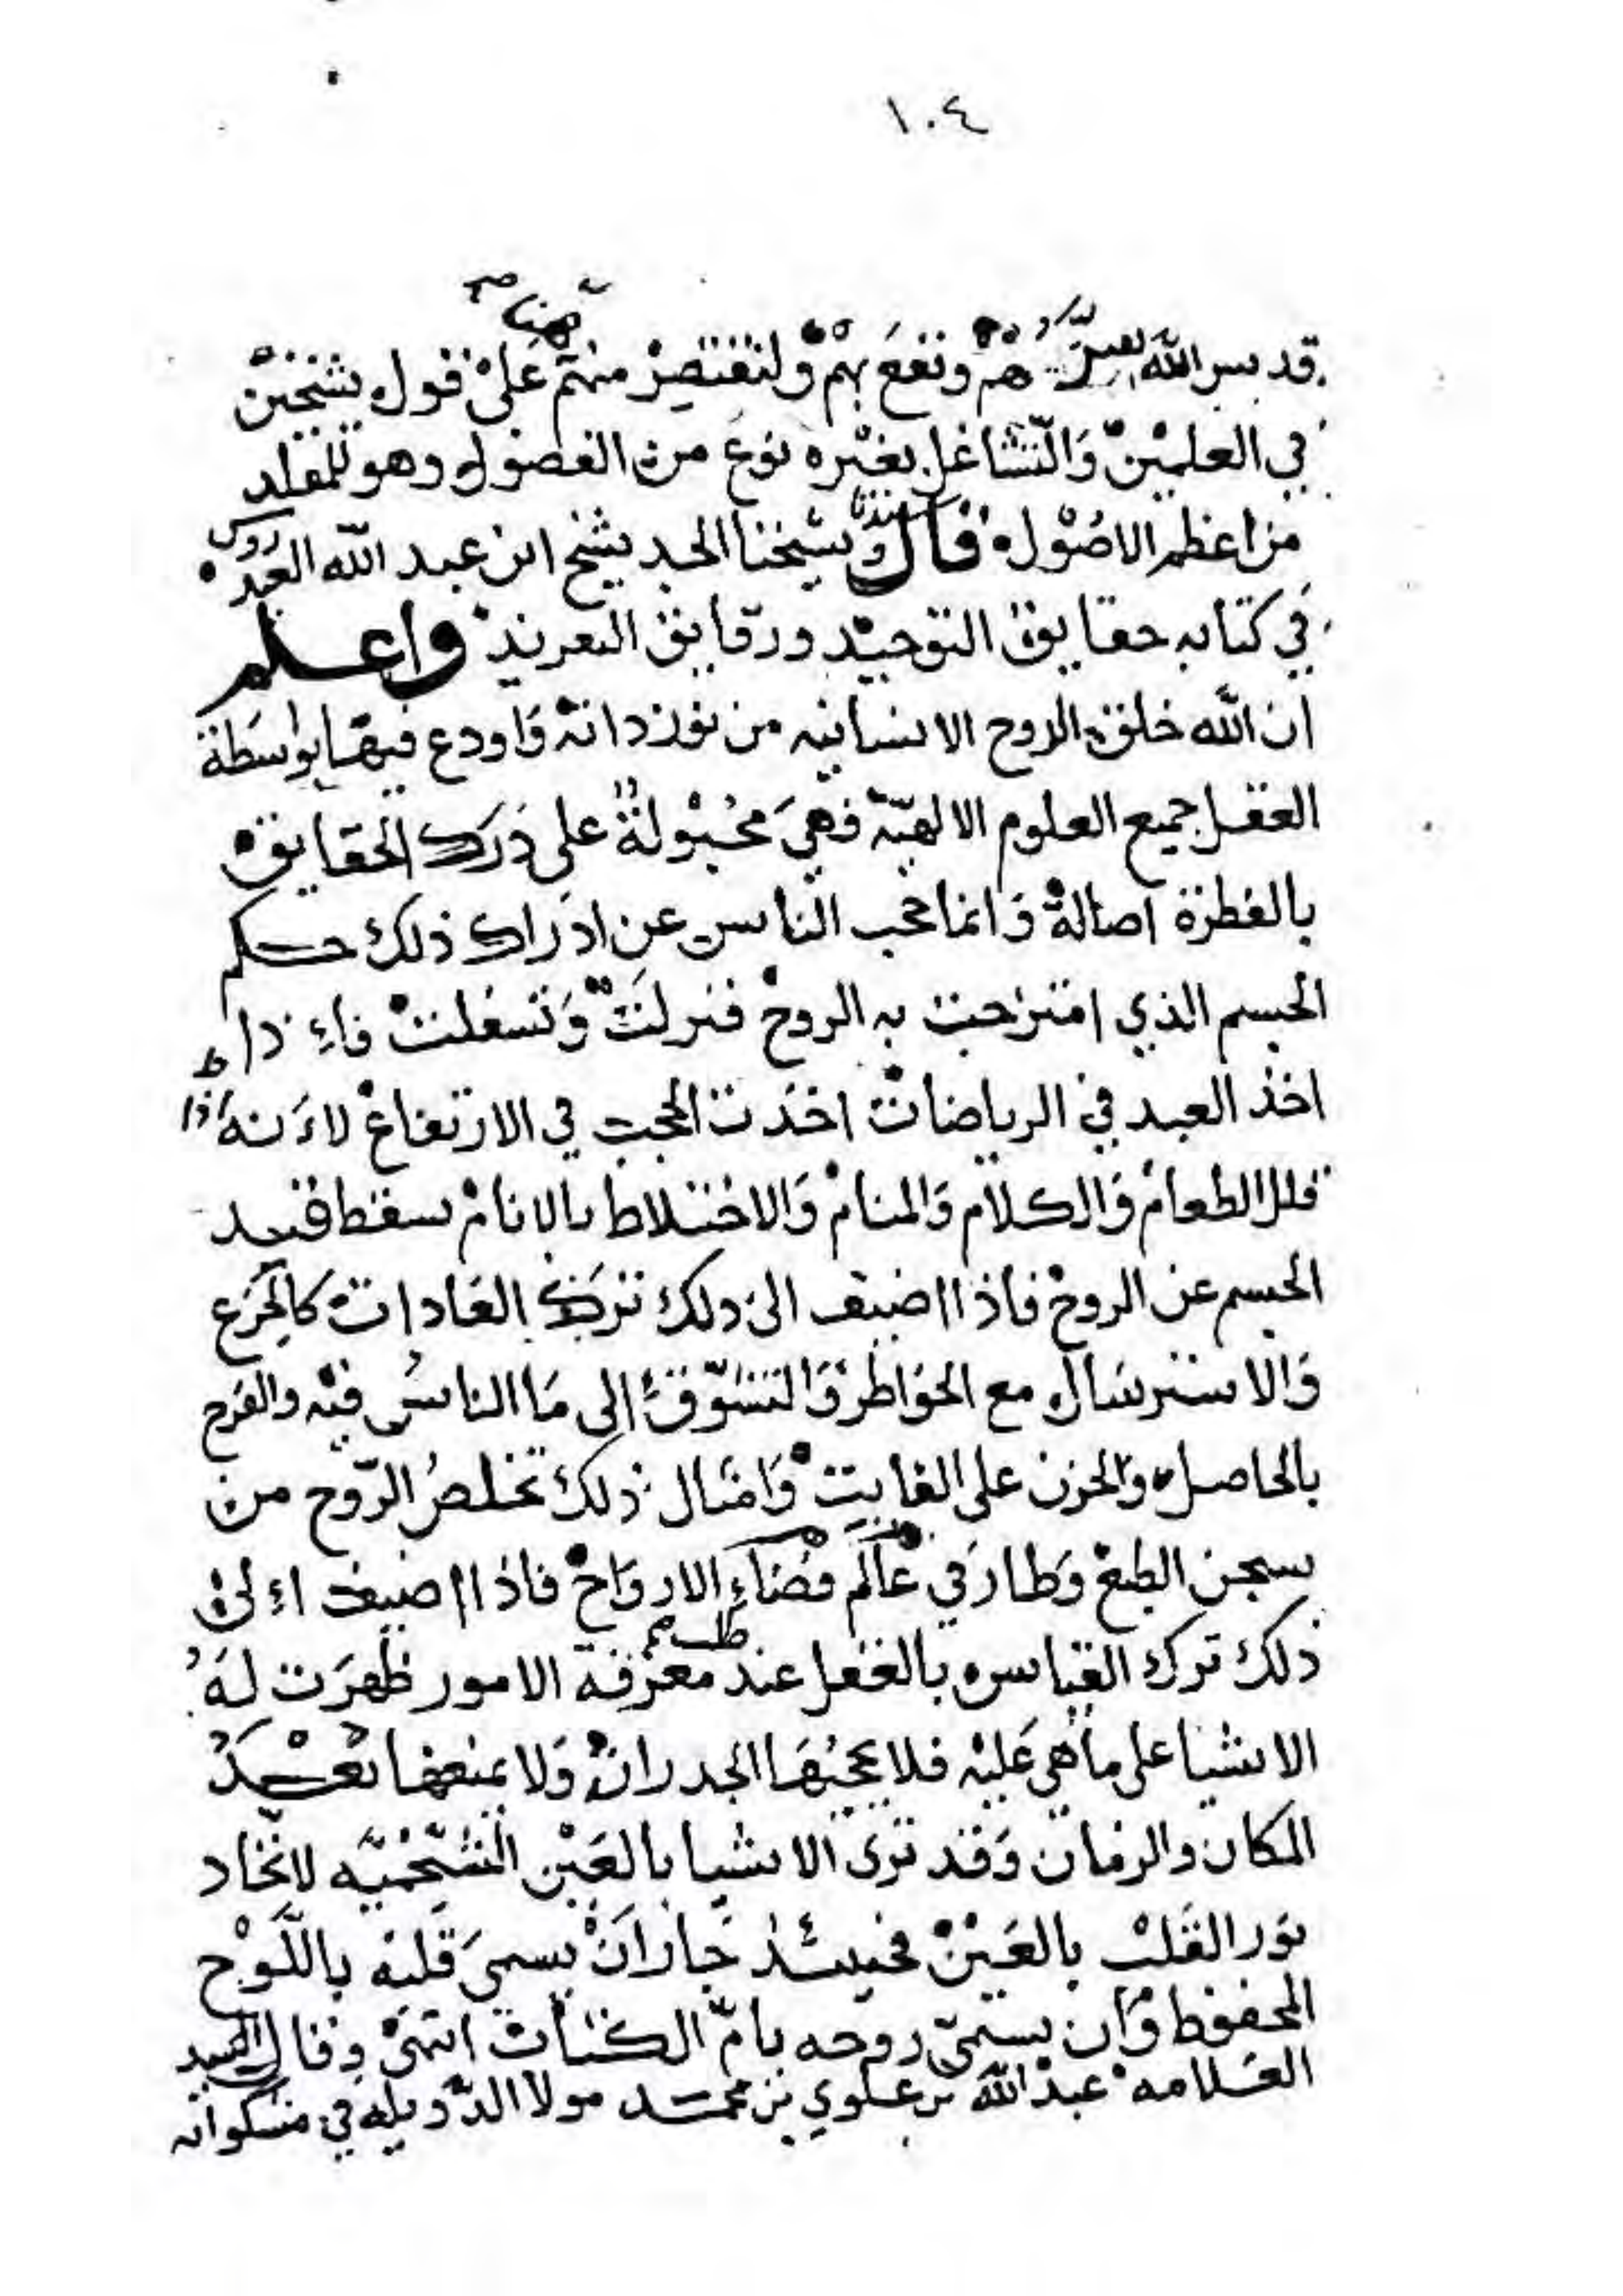 ١٠٤
هنا صح
قدس الله سرهم ونفع بهم ولنقتصر منهم على قول شيخين
في العلمين والتشاغل بغيره نوع من الفضول وهو للمقلد
من اعظم الاصول قال سيدنا وشيخنا الجد شيخ ابن عبد الله العيدروس
في كتابه حقايق التوحيد ورقايق التفريد واعلم
ان الله خلق الروح الانسانيه من نور ذاته وَاودع فيها بواسَطة
العقل جميع العلوم الالهيّه فهيَ مجبولةٌ على دَرَك الحقايق
بالفطرة اصالةً وَانما حجب الناس عن ادراك ذلك حكم
الجسم الذي امتزجت به الروح فنزلَتْ وَتسفلتْ فاءِذا
اخذ العبد في الرياضات اخذت الحجب في الارتفاع لاءَنه اذا
قلل الطعام وَالكلام وَالمنام وَالاختلاط بالانام سقط قيد
الجسم عن الروح فاذا اضيف الى ذلك ترك العَادات كالجزع
وَالاسترسَال مع الخواطر وَالتشوّق الى مَا الناسُ فيه والفرح
بالحاصل وَالحزن على الفايت وَامثال ذلك تخلصُ الرّوح من
سجن الطبع وَطار في عَالَم فضاءِ الارواح فاذا اضيف اءِلى
ذلك ترك القياس بالعقل عند طلب معرفة الامور ظهرَت لهُ
الاشيا على ما هي عَليه فلا يحجبُهَا الجدران وَلا يمنعها بُعْدُ
المكان والزمان وَقد ترى الاشيا بالعَيْن الشحْميّه لاتحاد
نور القَلب بالعَيْن فحينئذ جَازَ اَنْ يسمىَ قلبه باللّوْح
المحفوظ وَان يسمىّ روحه بامّ الكتاب انتهىَ وقال السيد
العَلامه عبد الله بن علوي بن محمد مولا الدّويله في